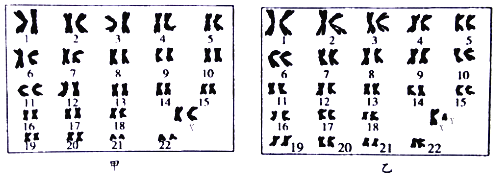 1 2 3 4 5
6 7 8 9 10
11 12 13 14 15
16 17 18
19 20 21 22
甲
1 2 3 4 5
6 7 8 9 10
11 12 13 14 15
16 17 18
19 20 21 22
乙